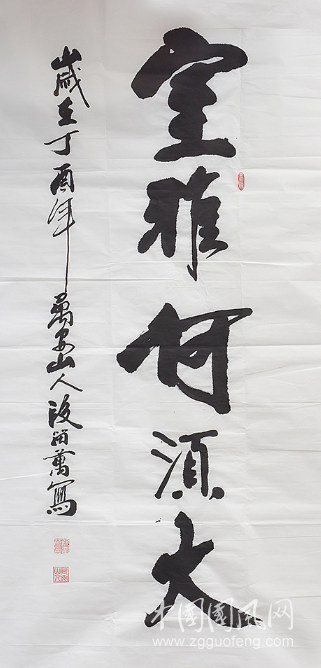 室雅何須大
歲在丁酉年萬安山人段俊萬寫
中国國风网
www.zgguofeng.com